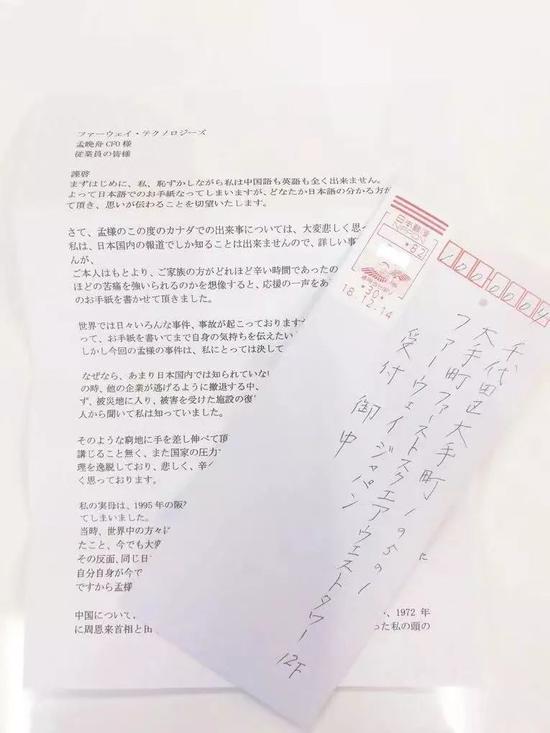 ファーウェイ・テクノロジーズ
孟晩舟 CFO 様
従業員の皆様
謹啓
まずはじめに、私、恥ずかしながら私は中国語も英語も全く出来ません。
よって日本語でのお手紙なってしまいますが、どなたか日本語の分かる方が
て頂き、思いが伝わることを切望いたします。
さて、孟様のこの度のカナダでの出来事については、大変悲しく思っ
私は、日本国内の報道でしか知ることは出来ませんので、詳しい事
んが、
ご本人はもとより、ご家族の方がどれほど辛い時間であったの
ほどの苦痛を強いられるのかを想像すると、応援の一声をあ
のお手紙を書かせて頂きました。
世界では日々いろんな事件、事故が起こっております
って、お手紙を書いてまで自身の気持ちを伝えたい
しかし今回の孟様の事件は、私にとっては決して
なぜなら、あまり日本国内では知られていない
の時、他の企業が逃げるように撤退する中、
ず、被災地に入り、被害を受けた施設の復
人から聞いて私は知っていました。
そのような窮地に手を差し伸べて頂
講じること無く、また国家の圧力
理を逸脱しており、悲しく、辛
く思っております。
私の実母は、1995 年の阪
てしまいました。
当時、世界中の方々に
たこと、今でも大変
その反面、同じ日
自分自身が今で
ですから孟様
中国について、
、1972 年
に周恩来首相と田
った私の頭の
日本郵便
NIPPON
82
30
18.12.14
千代田区大手町1の5の1
大手町ファーストスクエアウエストタワー12F
ファーウェイジャパン
受付 御中